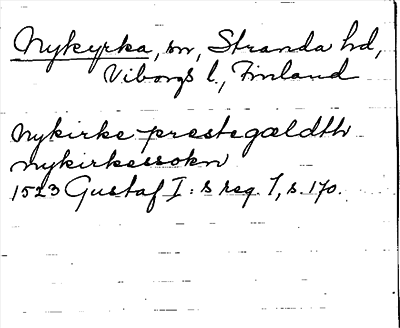 Nykyrka, sn, Stranda hd,
Viborgs l., Finland
nykirke prestegældth
nykirkessokn
1523 Gustaf I:s reg. 1, s. 170.